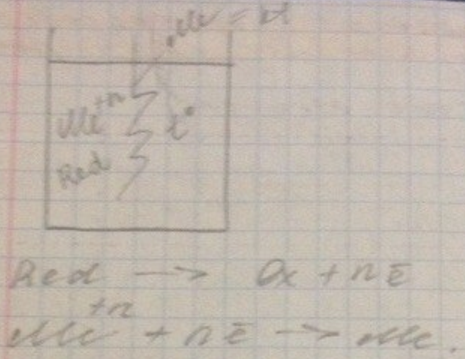 Me
Me⁺ⁿ t°
Red
Red → Ox + nē
Me⁺ⁿ + nē → Me.